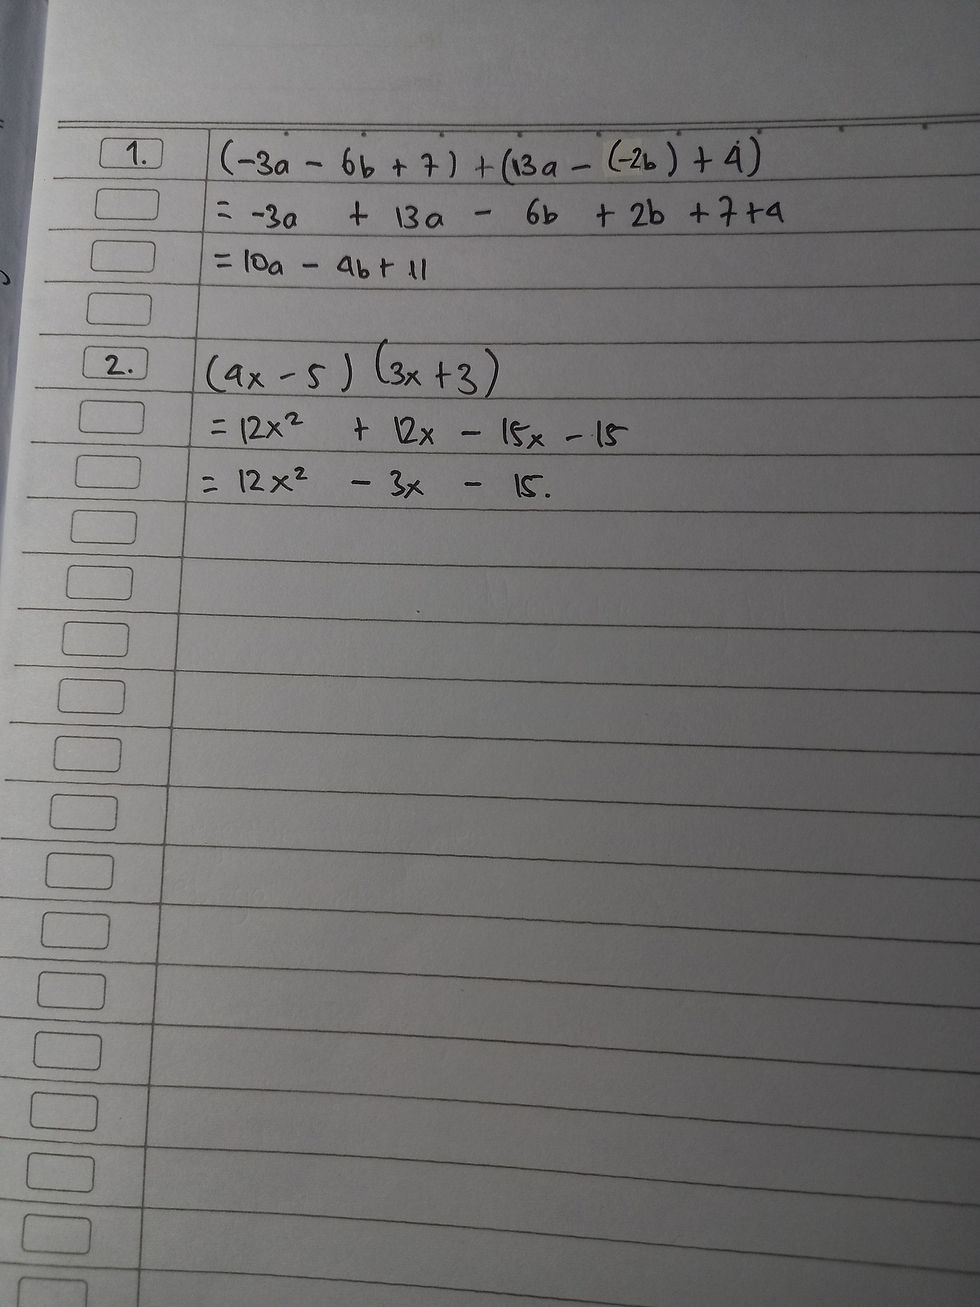 1. (-3a - 6b + 7) + (13a - (-2b) + 4)
= -3a + 13a - 6b + 2b + 7 + 4
= 10a - 4b + 11
2. (4x - 5) (3x + 3)
= 12x² + 12x - 15x - 15
= 12x² - 3x - 15.